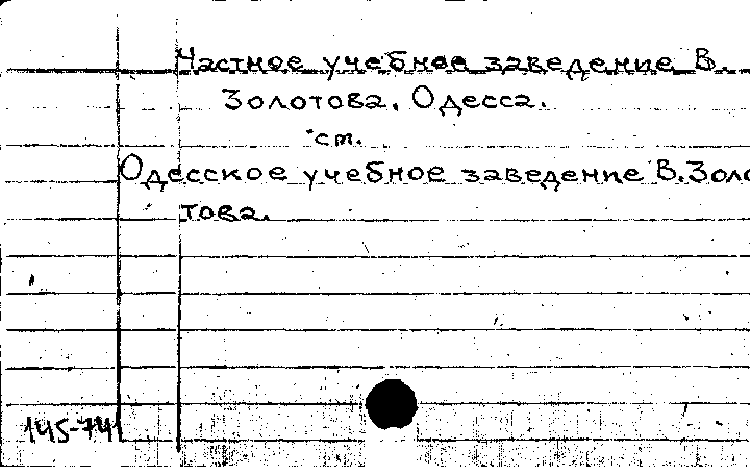 Частное учебное заведение В.
Золотова. Одесса.
ст.
Одесское учебное заведение В. Золо
това.
145-741